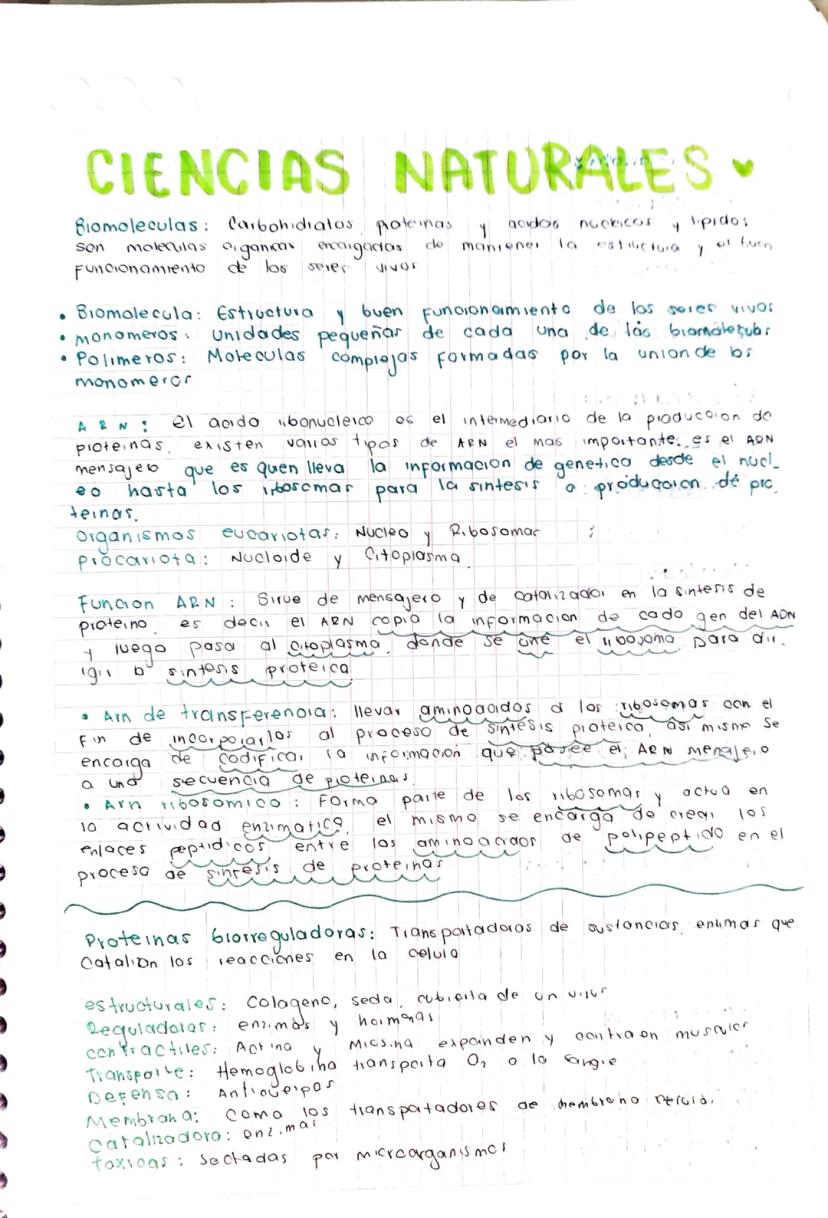 CIENCIAS NATURALES
Biomoleculas: Carbohidratos, proteinas y acidos nucleicos y lipidos
son moleculas organicas encargadas de mantener la estructura y el buen
funcionamiento de los seres vivos
• Biomolecula: Estructura y buen funcionamiento de los seres vivos
• monomeros: unidades pequeñas de cada una de las biomoleculas
• Polimeros: Moleculas complejas formadas por la union de los
monomeros
ARN: el acido ribonucleico es el intermediario de la produccion de
proteinas, existen varios tipos de ARN el mas importante es el ARN
mensajero que es quen lleva la informacion de genetica desde el nucl_
eo hasta los ribosomas para la sintesis o produccion de pro_
teinas.
Organismos eucariotas: Nucleo y Ribosomas
Procariota: Nucloide y Citoplasma
Funcion ARN: Sirve de mensajero y de catalizador en la sintesis de
proteina, es decir el ARN copia la informacion de cada gen del ADN
y luego pasa al citoplasma, donde se une el ribosoma para dir_
igir la sintesis proteica
• Arn de transferencia: llevar aminoacidos a los ribosomas con el
fin de incorporarlos al proceso de sintesis proteica, asi mismo se
encarga de codificar la informacion que posee el ARN menajero
a una secuencia de proteinas
• Arn ribosomico: Forma parte de los ribosomas y actua en
la actividad enzimatica, el mismo se encarga de crear los
enlaces peptidicos entre los aminoacidos de polipeptido en el
proceso de sintesis de proteinas
Proteinas biorreguladoras: Transportadoras de sustancias, enzimas que
catalizan las reacciones en la celula
estructurales: Colageno, seda, cubierta de un virus
Reguladoras: enzimas y hormonas
contractiles: Actina y Miosina expanden y contraen musculos
Transporte: Hemoglobina transporta O2 a la sangre
Defensa: Anticuerpos
Membrana: Como los transportadores de membrana celular.
Catalizadora: enzimas
toxicas: Sectadas por microorganismos